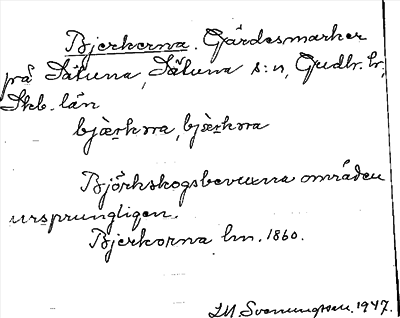 Bjerkerna. Gärdesmarker
på Såtuna, Såtuna s:n, Gudh. hd,
Skb. län
bjæ̀rkṇa, bjæ̀rkṇa
Björkskogsbevuxna områden
ursprungligen.
Bjerkorna hm. 1860.
Svenungsson. 1947.